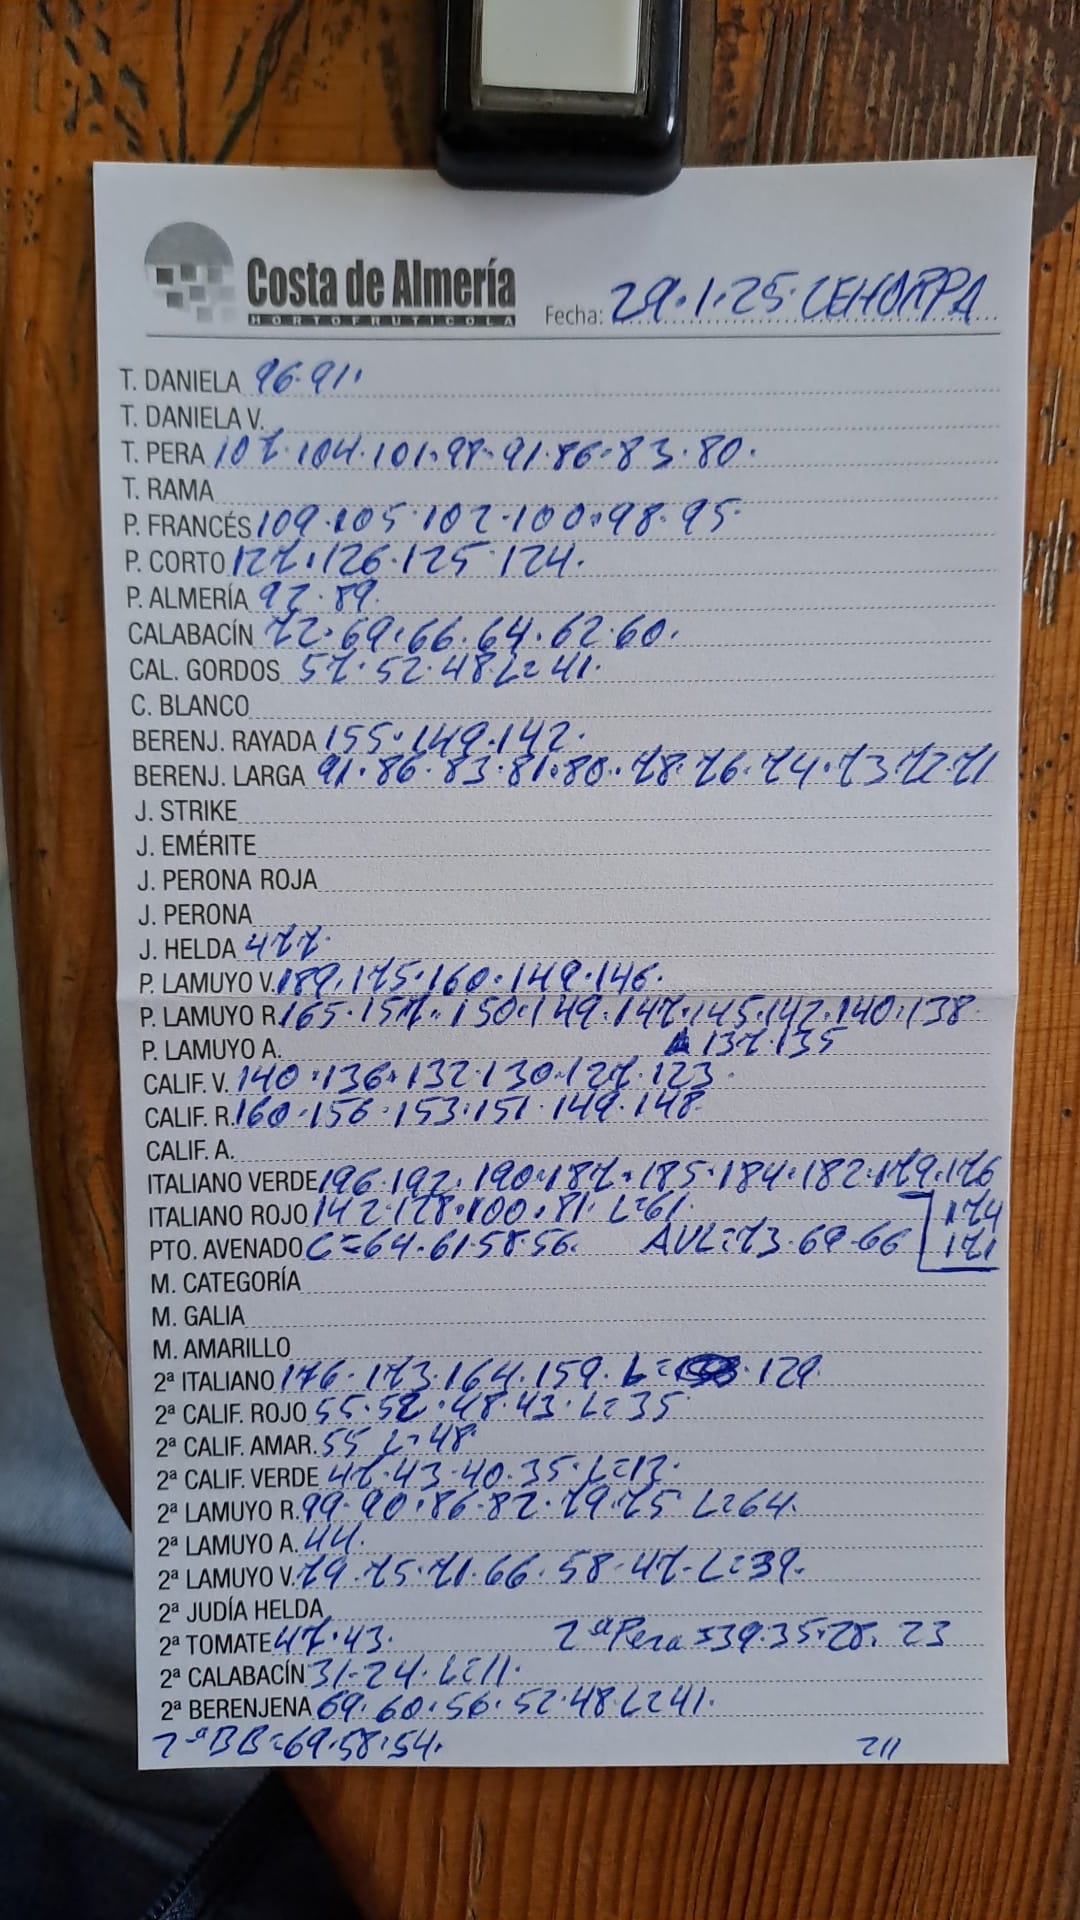 Costa de Almería
HORTOFRUTICOLA
Fecha: 29.1.25. CEHORPA
T. DANIELA 96.91.
T. DANIELA V.
T. PERA 107.104.101.98.91.86.83.80.
T. RAMA
P. FRANCÉS 109.105.102.100.98.95.
P. CORTO 127.126.125.124.
P. ALMERÍA 92.89.
CALABACÍN 72.69.66.64.62.60.
CAL. GORDOS 57.52.48.L=41.
C. BLANCO
BERENJ. RAYADA 155.149.142.
BERENJ. LARGA 91.86.83.81.80.78.76.74.73.72.71
J. STRIKE
J. EMÉRITE
J. PERONA ROJA
J. PERONA
J. HELDA 477.
P. LAMUYO V. 189.175.160.149.146.
P. LAMUYO R. 165.157.150.149.147.145.142.140.138.
P. LAMUYO A. 137.135
CALIF. V. 140.136.132.130.127.123.
CALIF. R. 160.156.153.151.149.148.
CALIF. A.
ITALIANO VERDE 196.192.190.187.185.184.182.179.176
ITALIANO ROJO 142.128.100.81.L=61. 174
PTO. AVENADO C=64.61.58.56. AVL=73.69.66 171
M. CATEGORÍA
M. GALIA
M. AMARILLO
2ª ITALIANO 176.173.164.159.L=129.
2ª CALIF. ROJO 55.52.48.43.L=35
2ª CALIF. AMAR. 55 L=48.
2ª CALIF. VERDE 47.43.40.35.L=12.
2ª LAMUYO R. 99.90.86.82.79.75 L=64.
2ª LAMUYO A. 44.
2ª LAMUYO V. 79.75.71.66.58.47.L=39.
2ª JUDÍA HELDA
2ª TOMATE 47.43. 2ª Pera=39.35.28.23
2ª CALABACÍN 31.24.L=11.
2ª BERENJENA 69.60.56.52.48 L=41.
2ªBB=69.58.54. 211